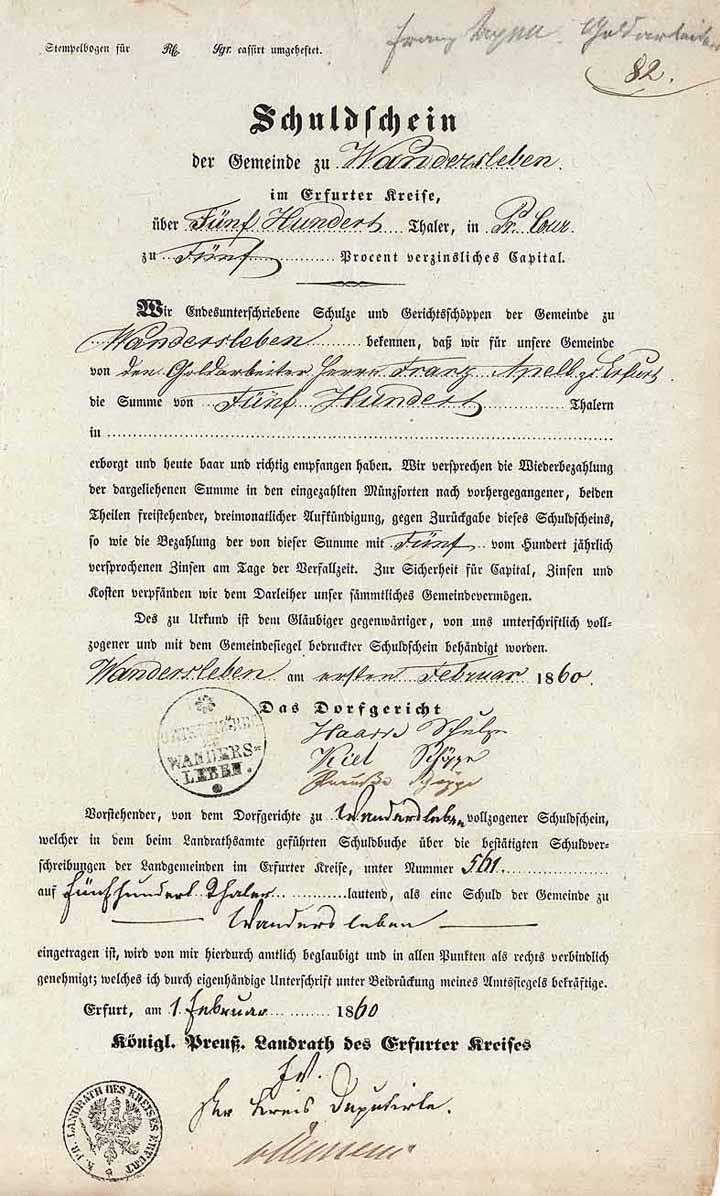 Stempelbogen für Rℓ. Sgr. cassirt umgeheftet.
Franz Goldarbeiter
82.
Schuldschein
der Gemeinde zu Wandersleben.
im Erfurter Kreise,
über Fünf Hundert Thaler, in Pr. Cour.
zu Fünf Procent verzinsliches Capital.
Wir Endesunterschriebene Schulze und Gerichtsschöppen der Gemeinde zu
Wandersleben bekennen, daß wir für unsere Gemeinde
von den Goldarbeiter Herrn Franz Apell zu Erfurt
die Summe von Fünf Hundert Thalern
in
erborgt und heute baar und richtig empfangen haben. Wir versprechen die Wiederbezahlung
der dargeliehenen Summe in den eingezahlten Münzsorten nach vorhergegangener, beiden
Theilen freistehender, dreimonatlicher Aufkündigung, gegen Zurückgabe dieses Schuldscheins,
so wie die Bezahlung der von dieser Summe mit Fünf vom Hundert jährlich
versprochenen Zinsen am Tage der Verfallzeit. Zur Sicherheit für Capital, Zinsen und
Kosten verpfänden wir dem Darleiher unser sämmtliches Gemeindevermögen.
Des zu Urkund ist dem Gläubiger gegenwärtiger, von uns unterschriftlich voll-
zogener und mit dem Gemeindesiegel bedruckter Schuldschein behändigt worden.
Wandersleben am ersten Februar 1860.
Das Dorfgericht
Haase Schulze
Kiel Schöppe
Preuße Schöppe
WANDERS=
LEBEN.
Vorstehender, von dem Dorfgerichte zu Wandersleben vollzogener Schuldschein,
welcher in dem beim Landrathsamte geführten Schuldbuche über die bestätigten Schuldver-
schreibungen der Landgemeinden im Erfurter Kreise, unter Nummer 561.
auf fünfhundert Thaler lautend, als eine Schuld der Gemeinde zu
Wandersleben
eingetragen ist, wird von mir hierdurch amtlich beglaubigt und in allen Punkten als rechts verbindlich
genehmigt; welches ich durch eigenhändige Unterschrift unter Beidrückung meines Amtssiegels bekräftige.
Erfurt, am 1. Februar 1860
Königl. Preuß. Landrath des Erfurter Kreises
I.V.
Der Kreis Deputirte.
K. PR. LANDRATH DES KREISES ERFURT